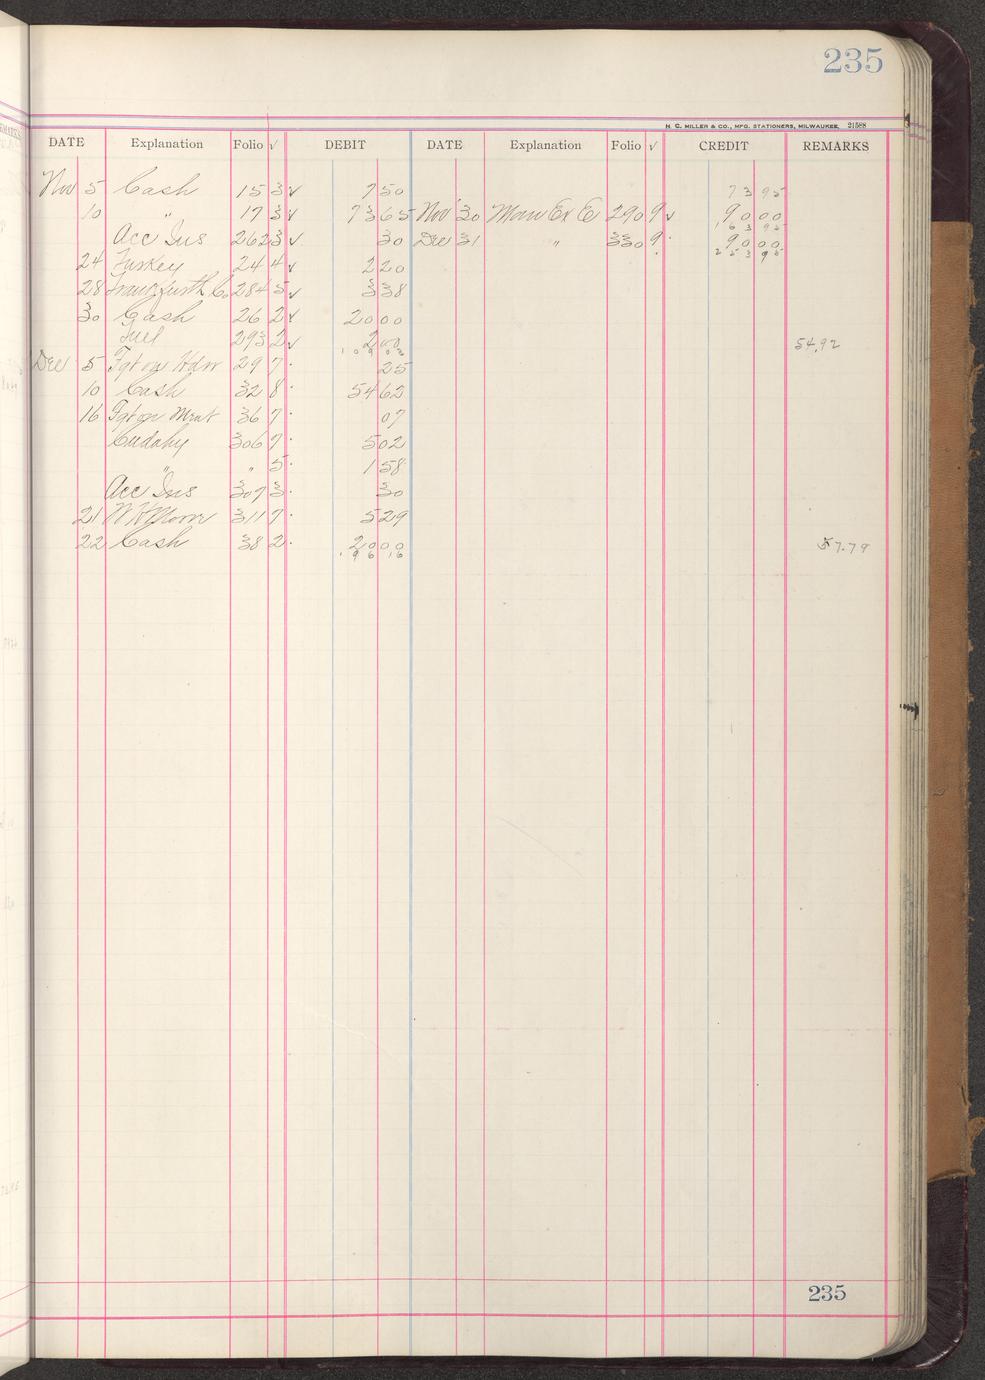 235
H. C. MILLER & CO., MFG. STATIONERS, MILWAUKEE, 21588
DATE Explanation Folio √ DEBIT DATE Explanation Folio √ CREDIT REMARKS
Nov 5 Cash 15 3 √ 7 50 73 95
10 " 17 3 √ 73 65 Nov 30 Main Ex E 290 9 √ 90 00
163 95
Acc Ins 262 3 √ 30 Dec 31 " 330 9 · 90 00
253 95
24 Turkey 24 4 √ 2 20
28 Frankfurth Co 284 5 √ 3 38
30 Cash 26 2 √ 20 00
Fuel 293 2 √ 2 00 54.92
109 03
Dec 5 Fgt on Hdw 29 7 · 25
10 Cash 32 8 · 54 62
16 Fgt on Meat 36 7 · 07
Cudahy 306 7 · 5 02
" " 5 · 1 58
Acc Ins 307 3 · 30
21 W H Moore 311 7 · 5 29
22 Cash 38 2 · 20 00 57.79
196 16
235